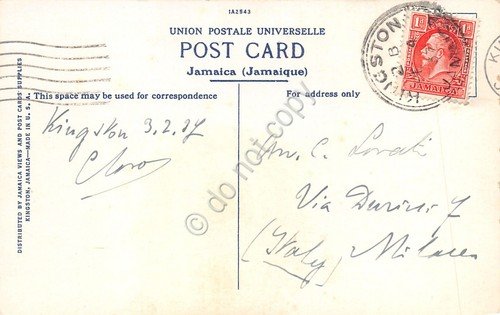 1A2943
UNION POSTALE UNIVERSELLE
POST CARD
Jamaica (Jamaique)
This space may be used for correspondence
For address only
DISTRIBUTED BY JAMAICA VIEWS AND POST CARDS SUPPLIES
KINGSTON, JAMAICA—MADE IN U. S. A.
Kingston 3.2.37
C. Lovati
Via Durini 7
(Italy) Milano
KINGSTON
1D 1D
JAMAICA
© do not copy